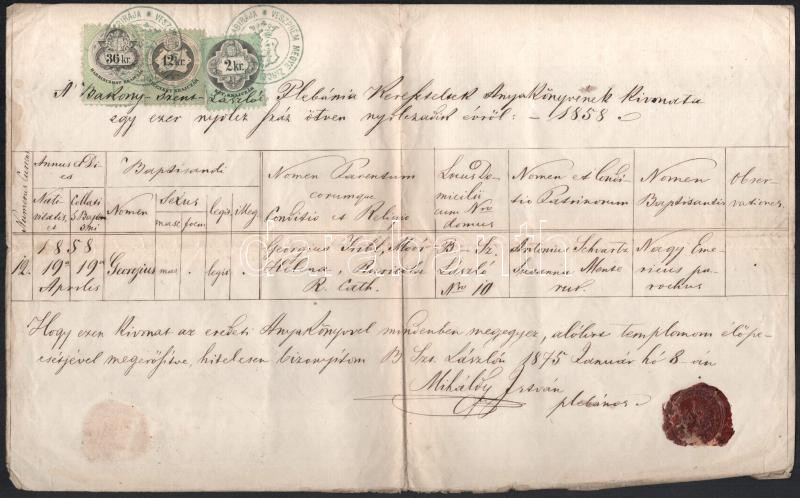 36 kr. 12 kr. 2 kr.
VESZPRÉM MEGYE
A Bakony-szent-László Plebánia Kereszteltek Anyakönyvének kivonata
egy ezer nyolcz száz ötven nyolczadik évről: 1858
Numerus Currens
Annus et Dies
Nativitatis et
Collati S. Baptismi
Baptisandi
Nomen
Sexus
masc. foem.
legit. illeg.
Nomen Parentum eorumque Conditio et Religio
Locus Domicilii cum Nro domus
Nomen et Conditio Patrinorum
Nomen Baptisantis
Observationes.
12.
1858
19a 19a
Aprilis
Georgius
mas
legit.
Georgius
Helena
R. Cath.
B. Sz. László
Nro 10
Antonius Schvartz
Susanna
Nagy Emericus parochus
Hogy ezen kivonat az eredeti Anyakönyvvel mindenben megegyez, alólirt templomom élő pe-
csétjével megerősitve, hitelesen bizonyitom B Szt. Lászlón 1875 Január hó 8-án
Mihálÿ István
plebános